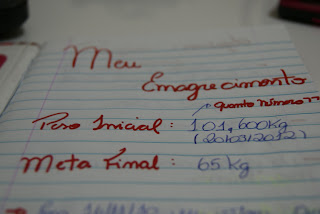 Meu
Emagrecimento
Quanto número
Peso Inicial: 101,600kg
(20/03/2012)
Meta Final: 65kg